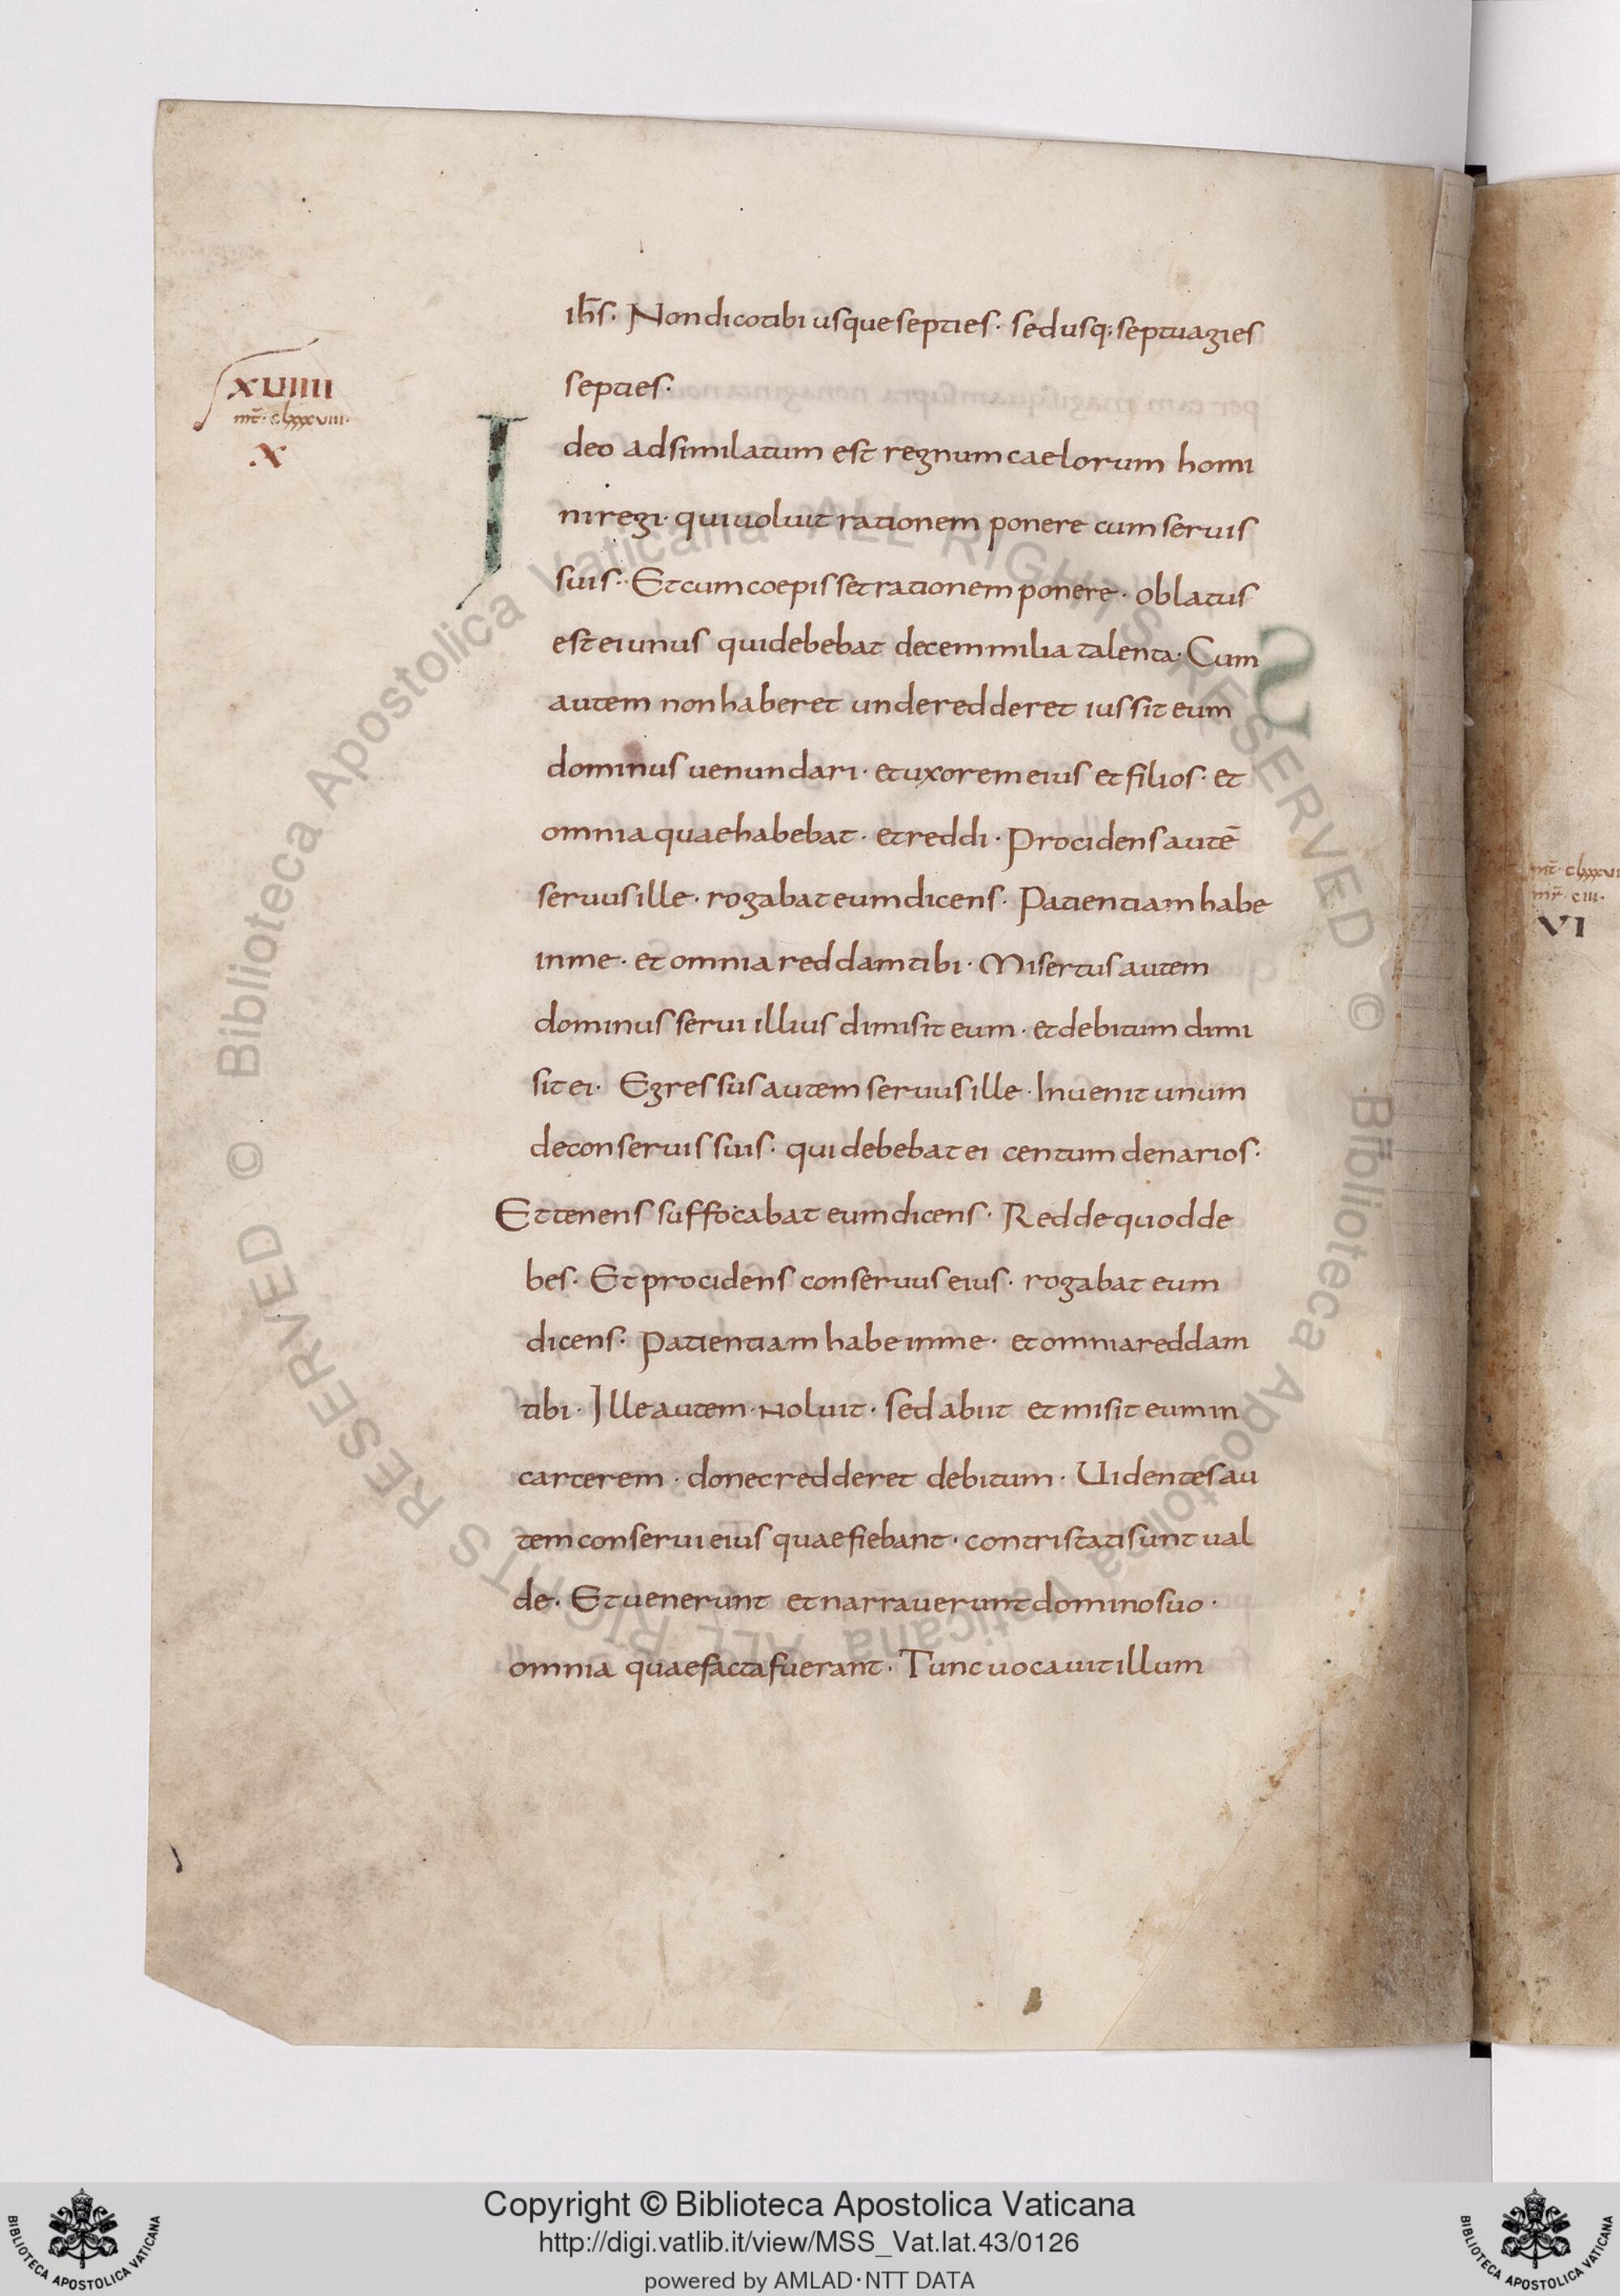 ih̅s. Non dico tibi usque septies. sed usq; septuagies
septies.
XVIIII
mt̅. clxxxviii.
X
Ideo adsimilatum est regnum caelorum homi
ni regi. qui voluit rationem ponere cum servis
suis. Et cum coepisset rationem ponere. oblatus
est ei unus qui debebat decem milia talenta. Cum
autem non haberet unde redderet iussit eum
dominus uenundari. et uxorem eius et filios. et
omnia quae habebat. et reddi. Procidens autē
seruus ille. rogabat eum dicens. Patientiam habe
in me. et omnia reddam tibi. Misertus autem
dominus serui illius dimisit eum. et debitum dimi
sit ei. Egressus autem seruus ille. Inuenit unum
de conseruis suis. qui debebat ei centum denarios.
Et tenens suffocabat eum dicens. Redde quod de
bes. Et procidens conseruus eius. rogabat eum
dicens. Patientiam habe in me. et omnia reddam
tibi. Ille autem noluit. sed abiit et misit eum in
carcerem. donec redderet debitum. Uidentes au
tem conserui eius quae fiebant. contristati sunt ual
de. Et uenerunt et narrauerunt domino suo.
omnia quae facta fuerant. Tunc uocauit illum
mr̅. ciii.
VI
© Biblioteca Apostolica Vaticana ALL RIGHTS RESERVED © Biblioteca Apostolica Vaticana ALL RIGHTS RESERVED
Copyright © Biblioteca Apostolica Vaticana
http://digi.vatlib.it/view/MSS_Vat.lat.43/0126
powered by AMLAD·NTT DATA
BIBLIOTECA APOSTOLICA VATICANA
BIBLIOTECA APOSTOLICA VATICANA